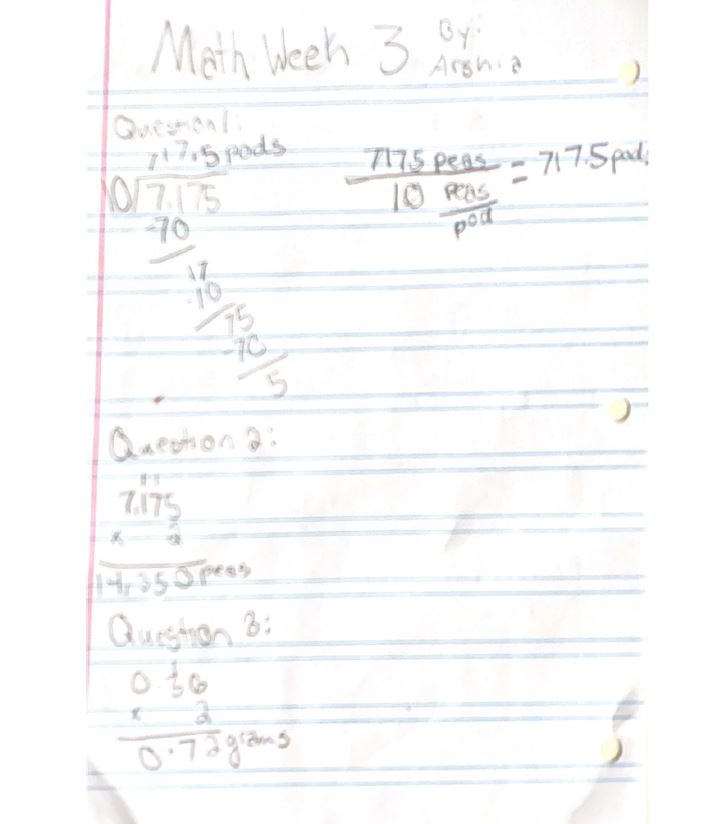 Math Week 3 By:
Arshia
Question 1:
717.5 pods
10 7,175
-70
17
-10
75
-70
5
7175 peas = 717.5 pods
10 peas
pod
Question 2:
11
7,175
x 2
14,350 peas
Question 3:
1
0.36
x 2
0.72 grams